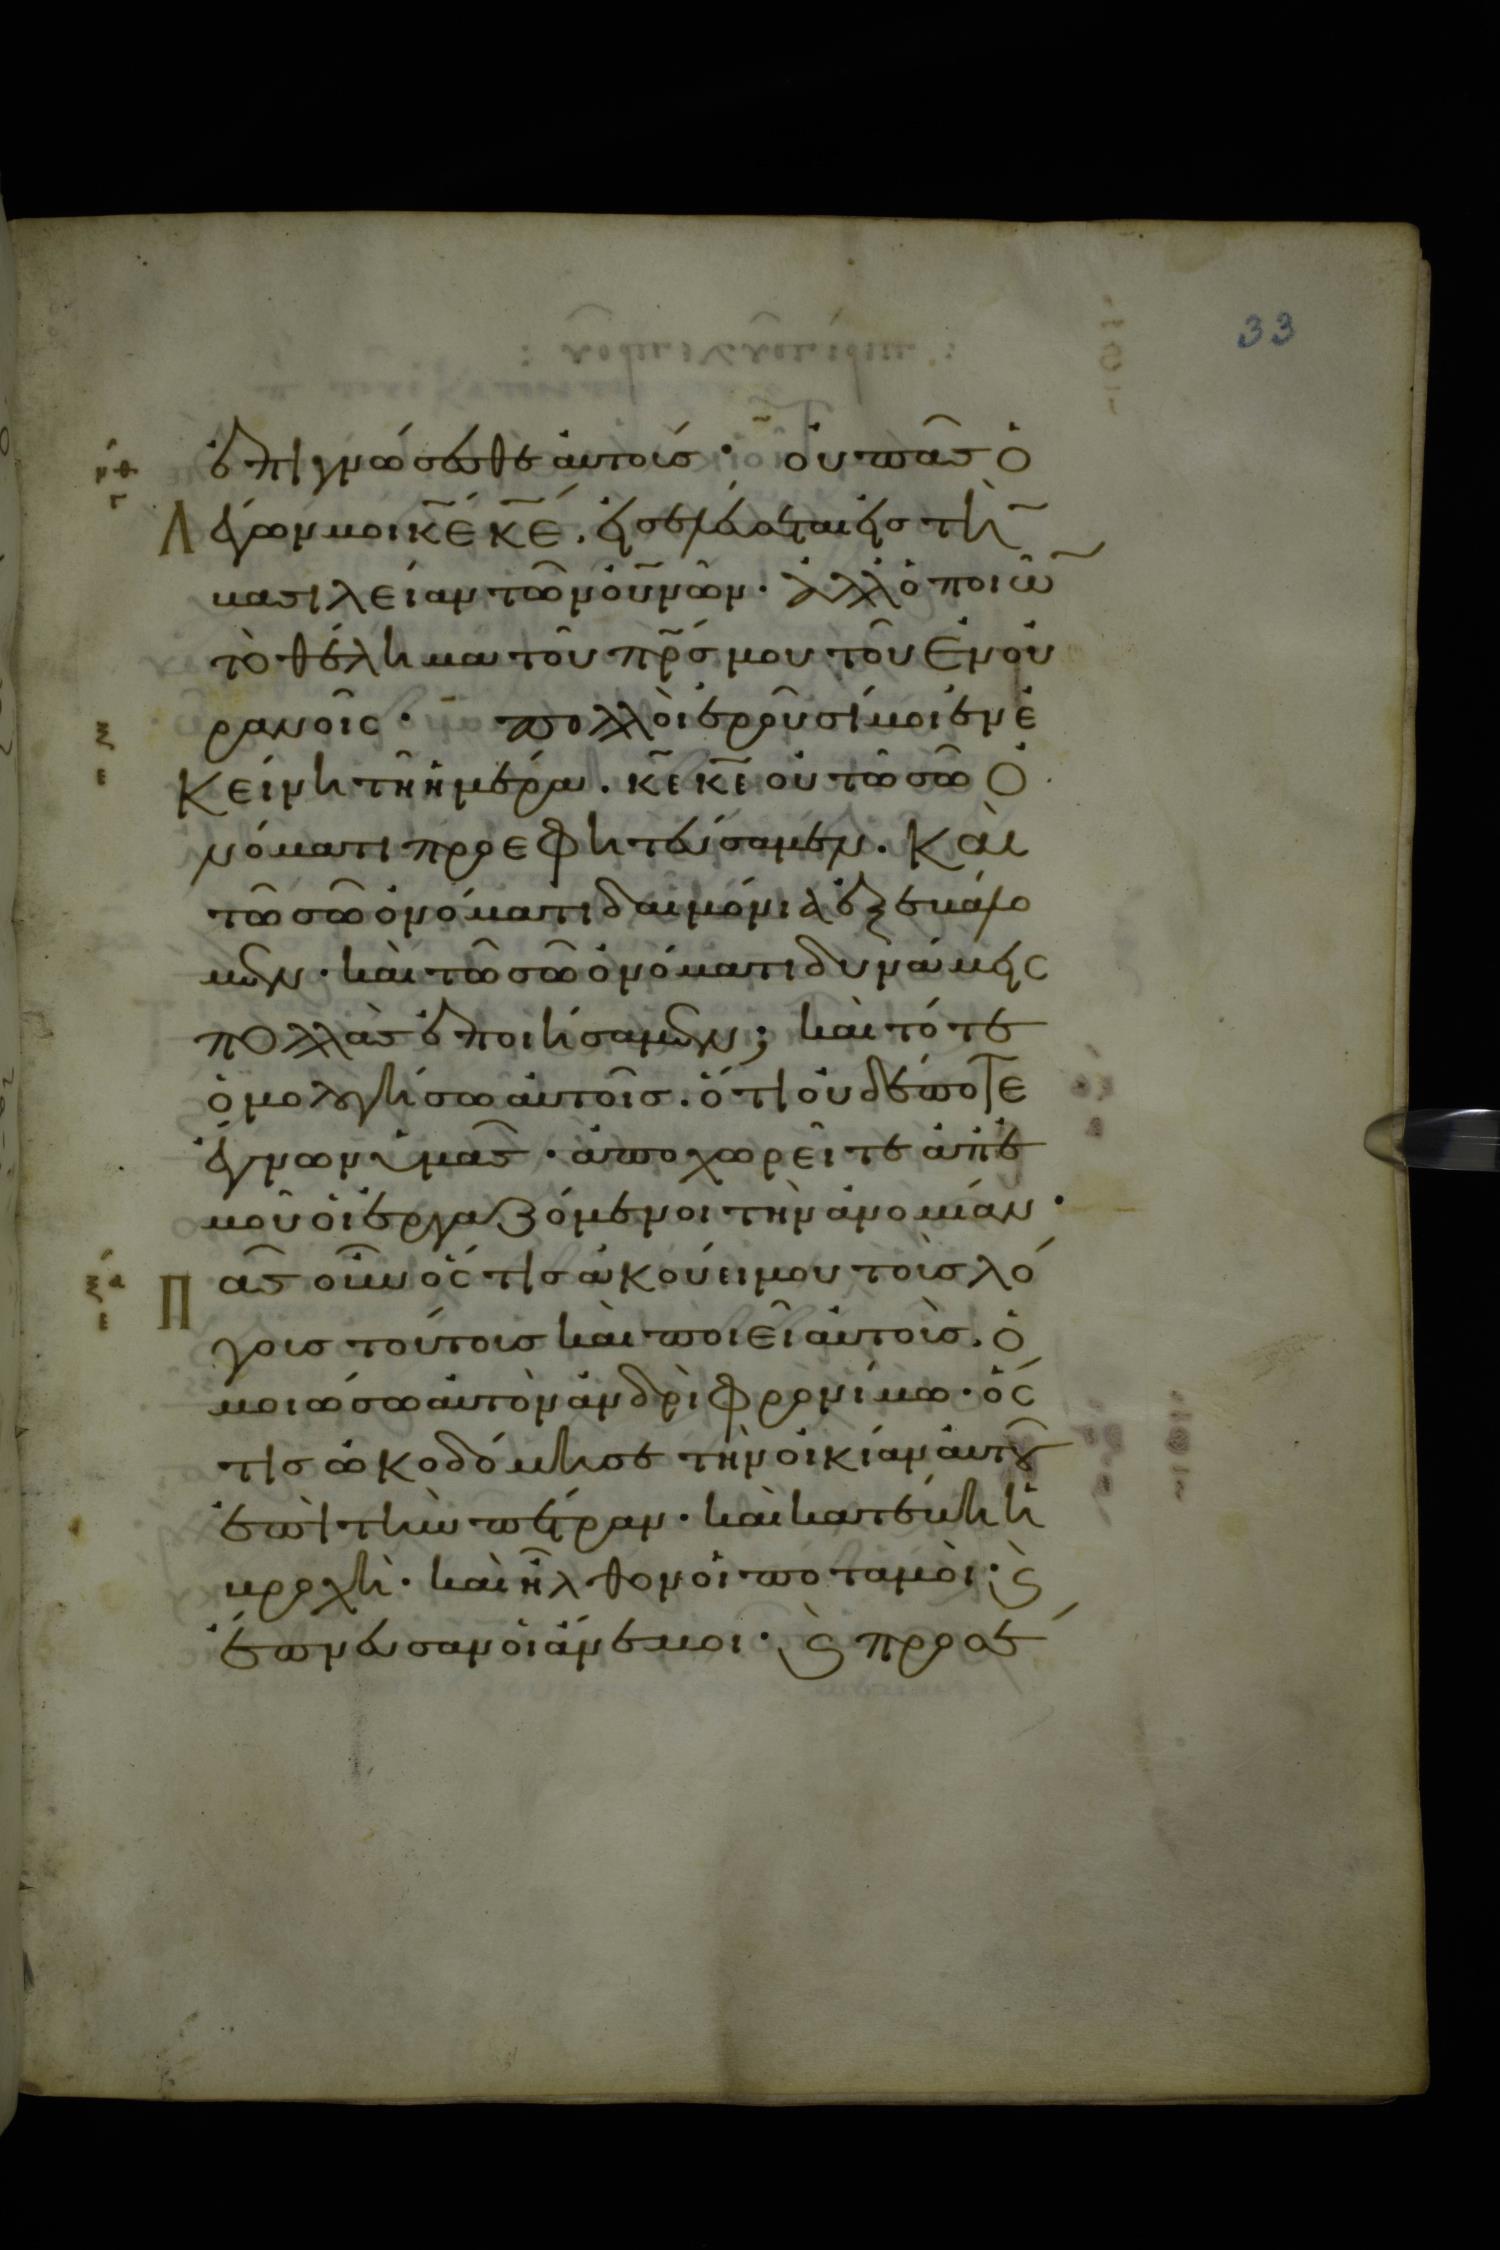 33
ἐπιγνώσεσθε αὐτούς· οὐ πᾶς ὁ
λέγων μοι κ̅ε̅ κ̅ε̅. εἰσελεύσεται εἰς τὴ
βασιλείαν τῶν οὐνῶν· ἀλλ ὁ ποιῶ
τὸ θέλημα τοῦ π̅ρ̅ς̅ μου τοῦ ἐν οὐ
ρανοῖς· πολλοὶ ἐροῦσί μοι ἐν ἐ
κείνη τῆ ἡμέρα. κ̅ε̅ κ̅ε̅ οὐ τῶ σῶ ὀ
νόματι προεφητεύσαμεν. καὶ
τῶ σῶ ὀνόματι δαιμόνια ἐξεβάλο
μεν· καὶ τῶ σῶ ὀνόματι δυνάμεις
πολλὰς ἐποιήσαμεν; καὶ τότε
ὁμολογήσω αὐτοῖς. ὅτι οὐδέποτε
ἔγνων ὑμᾶς· ἀποχωρεῖτε ἀπ ἐ
μοῦ οἱ ἐργαζόμενοι τὴν ἀνομίαν·
Πᾶς οὖν ὅστις ἀκούει μου τοὺς λό
γους τούτους καὶ ποιεῖ αὐτούς. ὁ
μοιώσω αὐτὸν ἀνδρὶ φρονίμω· ὅς
τις ὠκοδόμησε τὴν οἰκίαν αὐτοῦ
ἐπὶ τὴν πέτραν· καὶ κατέβη ἡ
βροχὴ· καὶ ἦλθον οἱ ποταμοὶ· ϗ
ἔπνευσαν οἱ ἄνεμοι· ϗ προσέ